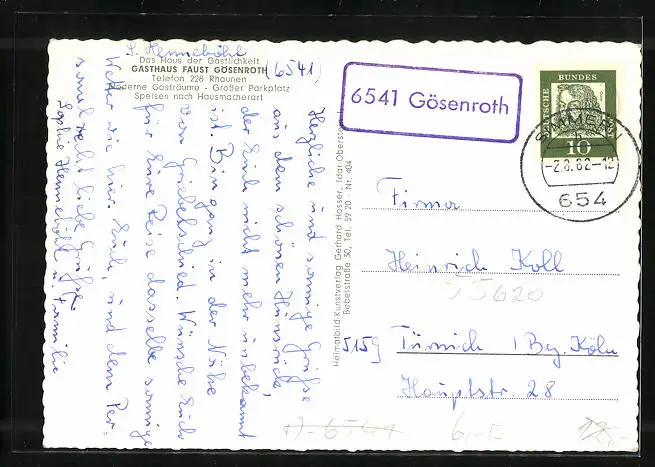 S. Henneböhl
Das Haus der Gastlichkeit
GASTHAUS FAUST GÖSENROTH (6541)
Telefon 228 Rhaunen
Moderne Gasträume - Großer Parkplatz
Speisen nach Hausmacherart
Herzliche und sonnige Grüße
aus dem schönen Hunsrück,
der Euch nicht mehr unbekannt
ist. Bin ganz in der Nähe
von Griebelschied. Wünsche Euch
für Eure Reise dasselbe sonnige
Wetter wie hier. Euch, und dem Per-
sonal recht liebe Grüße
Sophie Henneböhl u. Familie
Heimatbild-Kunstverlag Gerhard Hosser, Idar-Oberstein
Bebelstraße 30, Tel. 59 20 - Nr. 404
6541 Gösenroth
DEUTSCHE BUNDESPOST
10
SIMMERN
-2.8.62-12
654
Firma
Heinrich Koll
55620
5159 Türnich / Bez. Köln
Hauptstr. 28
6,-